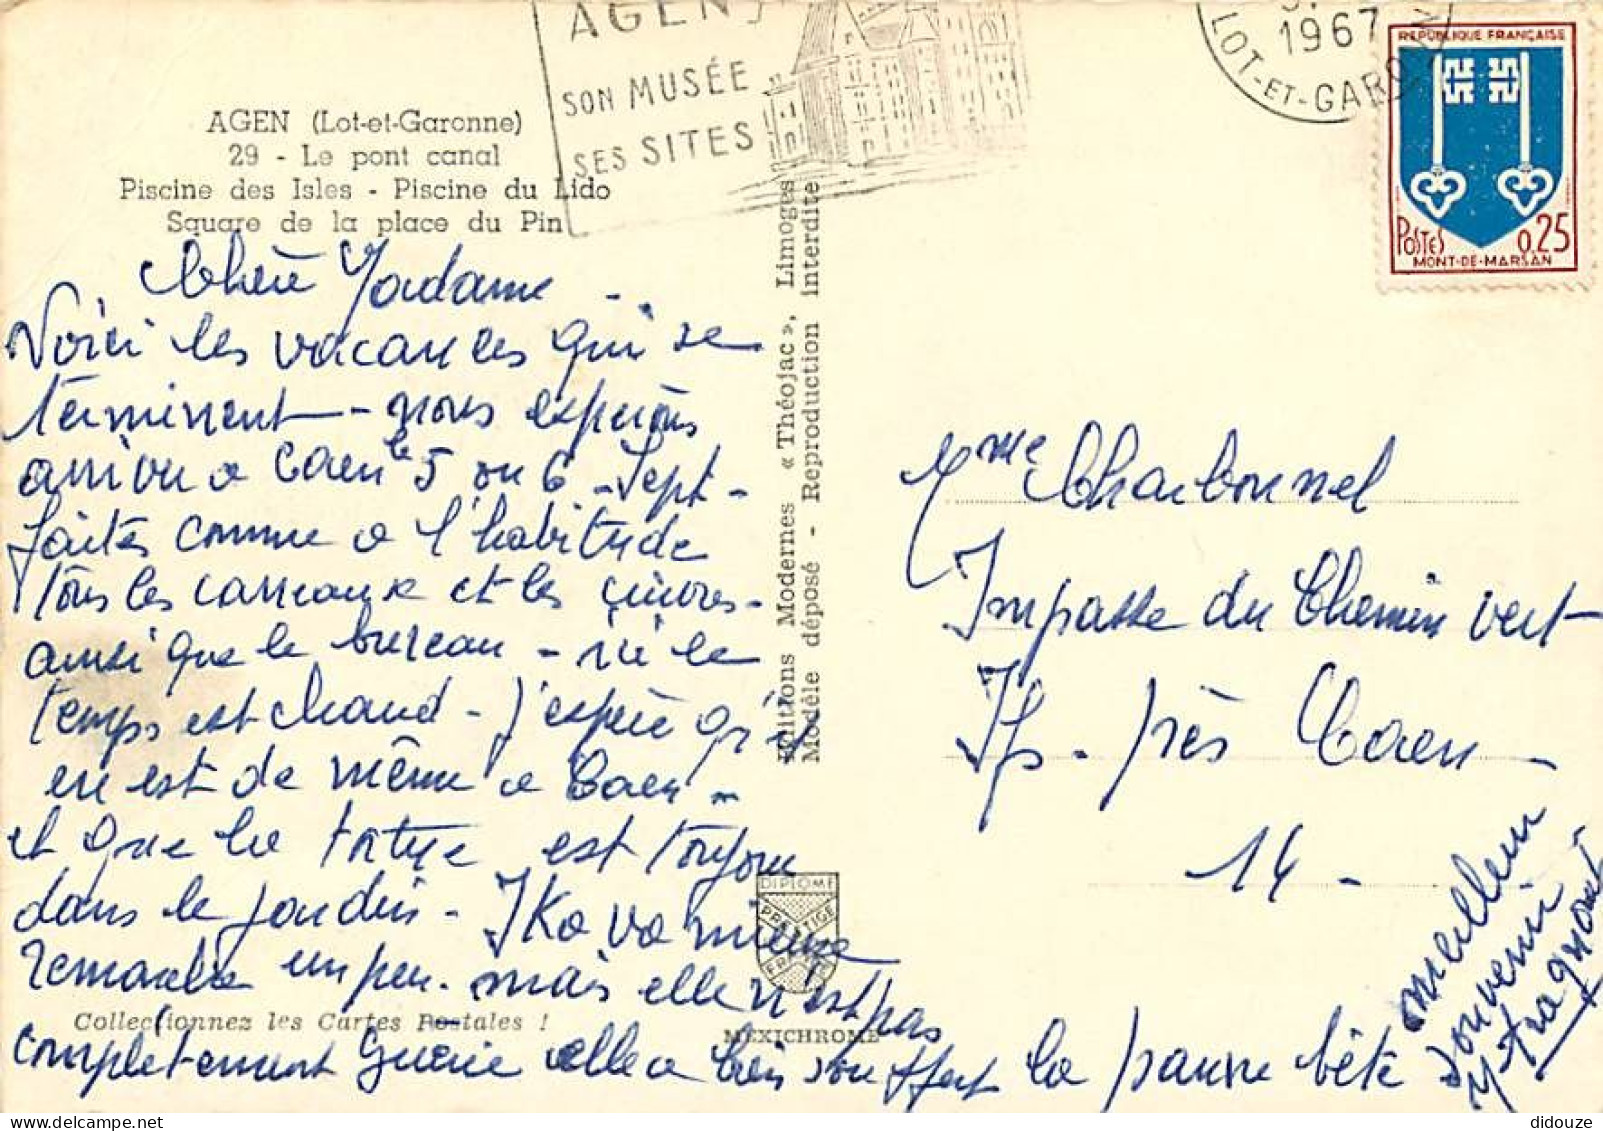 AGEN
SON MUSÉE
SES SITES
1967
LOT-ET-GARONNE
RÉPUBLIQUE FRANÇAISE
POSTES 0,25
MONT-DE-MARSAN
AGEN (Lot-et-Garonne)
29 - Le pont canal
Piscine des Isles - Piscine du Lido
Square de la place du Pin
Chère Madame
Voici les vacances qui se
terminent - nous espérons
arriver a Caen le 5 ou 6 - Sept -
faites comme a l'habitude
tous les carreaux et les cuivres -
ainsi que le bureau - ici le
temps est chaud - j'espère qu'il
en est de même a Caen -
et que la tortue est toujours
dans le jardin - IKa va mieux
remarche un peu. mais elle n'est pas
complètement guérie elle a bien souffert la pauvre bête
meilleur
souvenir
Editions Modernes « Théojac », Limoges
Modèle déposé - Reproduction interdite
DIPLOME
PRESTIGE
FRANCE
Collectionnez les Cartes Postales !
MEXICHROME
Mme Charbonnel
Impasse du Chemin vert
Ifs - près Caen -
14 -
didouze @ delcampe.net